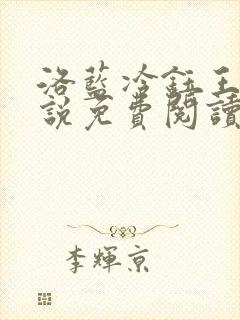 洛藍冷鈺王
說免費閱讀
李輝京